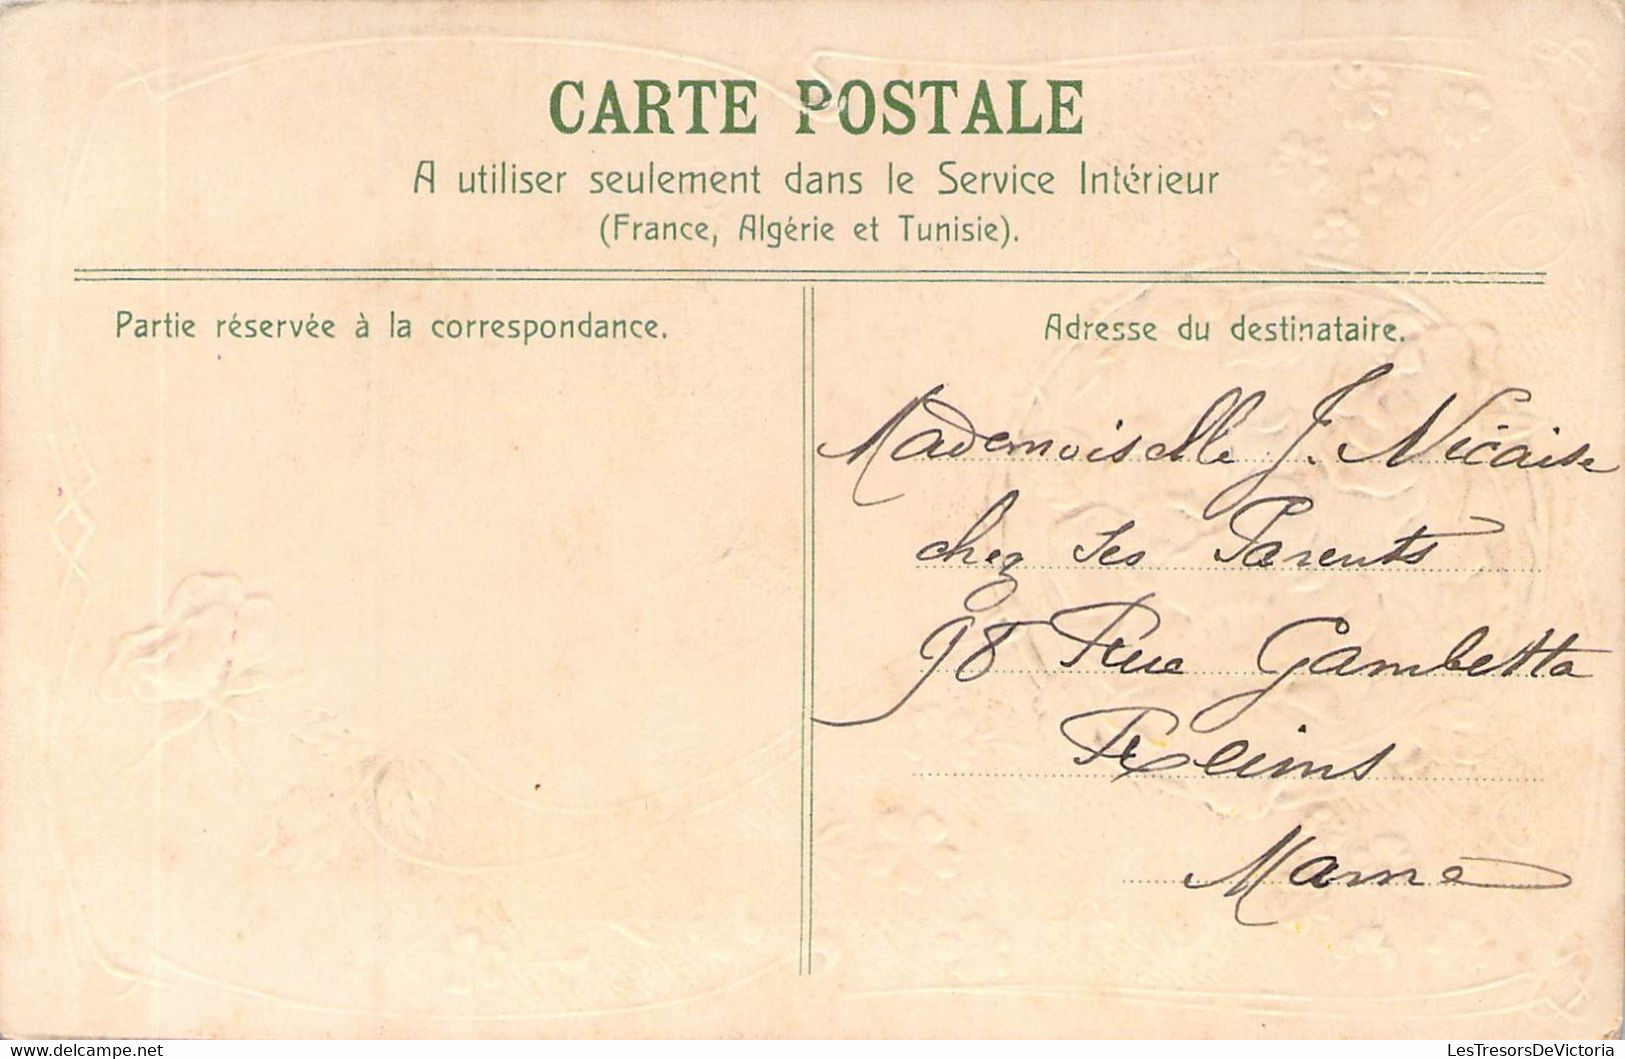 CARTE POSTALE
A utiliser seulement dans le Service Intérieur
(France, Algérie et Tunisie).
Partie réservée à la correspondance.
Adresse du destinataire.
Mademoiselle J. Nicaise
chez ses Parents
98 Rue Gambetta
Reims
Marne
LesTresorsDeVictoria